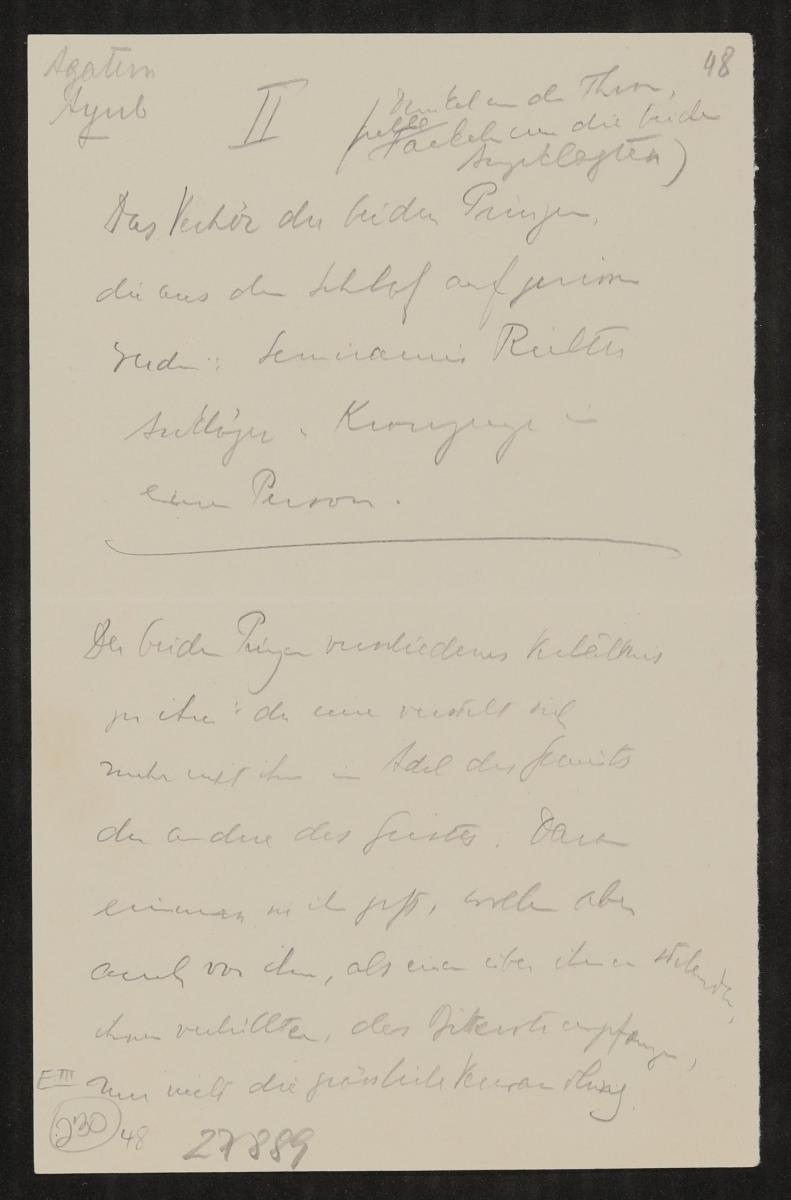 Agathon
Ayub
II
48
(Dunkel um den Thron,
helle
Fackeln um die beiden
Angeklagten)
Das Verhör der beiden Prinzen,
die aus dem Schlaf aufgerissen
werden: Semiramis Richter
Ankläger u. Kronzeuge in
einer Person.
Der beiden Prinzen verschiedenes Verhältnis
zu ihm: der eine versteht sich
mehr mit ihm im Adel des Gemüts
der andere des Geistes. Daran
erinnern sie ihn jetzt, wollen aber
auch von ihm, als einem über ihnen stehenden,
ihnen verhüllten, das empfangen,
nur nicht die grässliche Verwandlung.
E III
230
48
27889